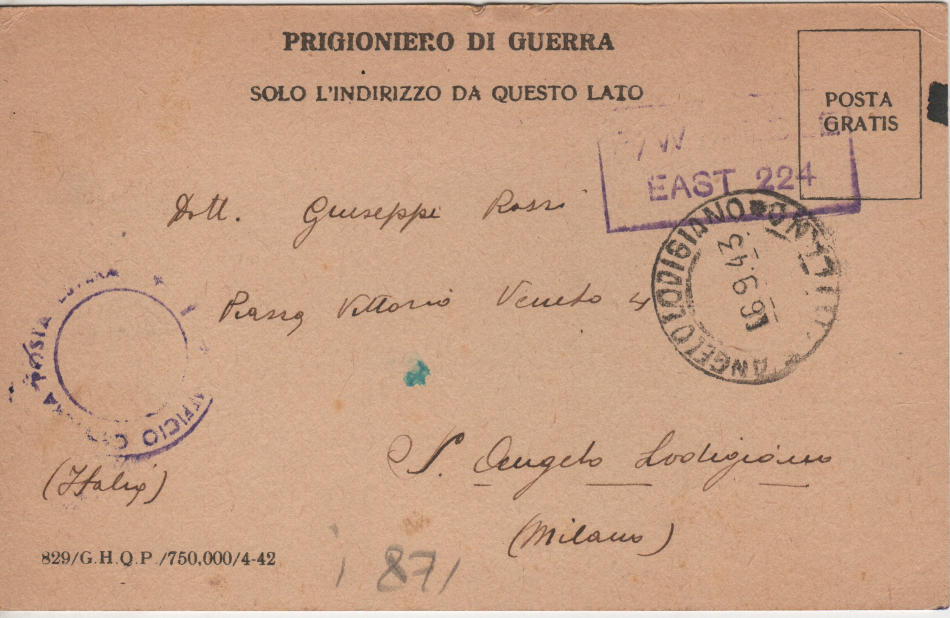 PRIGIONIERO DI GUERRA
SOLO L'INDIRIZZO DA QUESTO LATO
POSTA
GRATIS
P/W
EAST 224
Dott. Giuseppe Rossi
Piazza Vittorio Veneto 4
ANGELO LODIGIANO
6.9.43
POSTA
UFFICIO
S. Angelo Lodigiano
(Italia)
(Milano)
829/G.H.Q.P./750,000/4-42
871